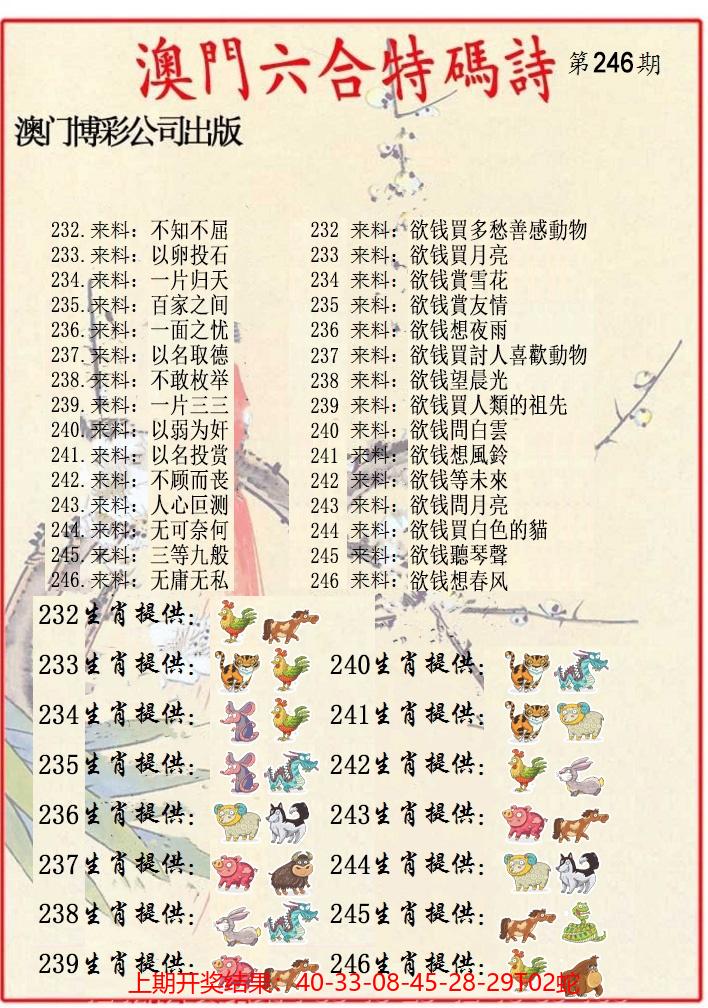 澳門六合特碼詩 第246期
澳门博彩公司出版
232.来料：不知不屈 232 来料：欲钱買多愁善感動物
233.来料：以卵投石 233 来料：欲钱買月亮
234.来料：一片归天 234 来料：欲钱賞雪花
235.来料：百家之间 235 来料：欲钱賞友情
236.来料：一面之忧 236 来料：欲钱想夜雨
237.来料：以名取德 237 来料：欲钱買討人喜歡動物
238.来料：不敢枚举 238 来料：欲钱望晨光
239.来料：一片三三 239 来料：欲钱買人類的祖先
240.来料：以弱为奸 240 来料：欲钱問白雲
241.来料：以名投赏 241 来料：欲钱想風鈴
242.来料：不顾而丧 242 来料：欲钱等未來
243.来料：人心叵测 243 来料：欲钱問月亮
244.来料：无可奈何 244 来料：欲钱買白色的貓
245.来料：三等九般 245 来料：欲钱聽琴聲
246.来料：无庸无私 246 来料：欲钱想春风
232生肖提供：
233生肖提供： 240生肖提供：
234生肖提供： 241生肖提供：
235生肖提供： 242生肖提供：
236生肖提供： 243生肖提供：
237生肖提供： 244生肖提供：
238生肖提供： 245生肖提供：
239生肖提供： 246生肖提供：
上期开奖结果：40-33-08-45-28-29T02蛇